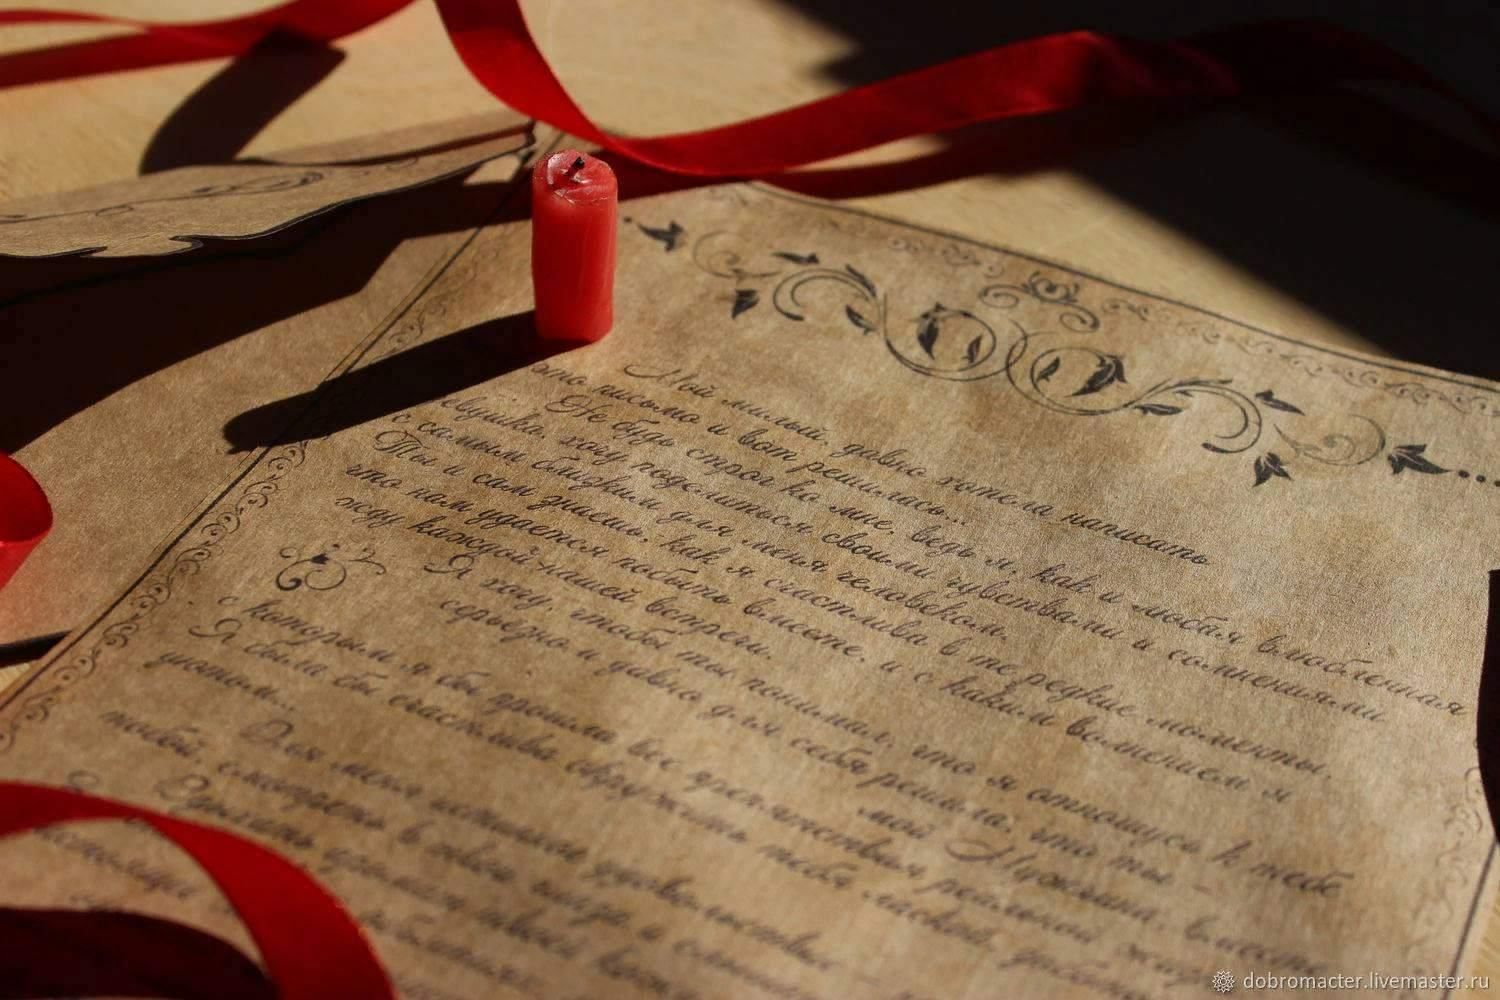 Мой милый, давно хотела написать
это письмо и вот решилась...
Не будь строг ко мне, ведь я, как и любая влюбленная
девушка, хочу поделиться своими чувствами и сомнениями
с самым близким для меня человеком.
Ты и сам знаешь, как я счастлива в те редкие моменты,
что нам удается побыть вместе, и с каким волнением я
жду каждой нашей встречи.
Я хочу, чтобы ты понимал, что я отношусь к тебе
серьезно и давно для себя решила, что ты -
мой Мужчина, вместе
с которым я бы прошла все препятствия реальной
Я была бы счастлива окружить тебя лаской,
уютом...
Для меня истинное удовольствие
тобой, смотреть в твои глаза и
dobromacter.livemaster.ru